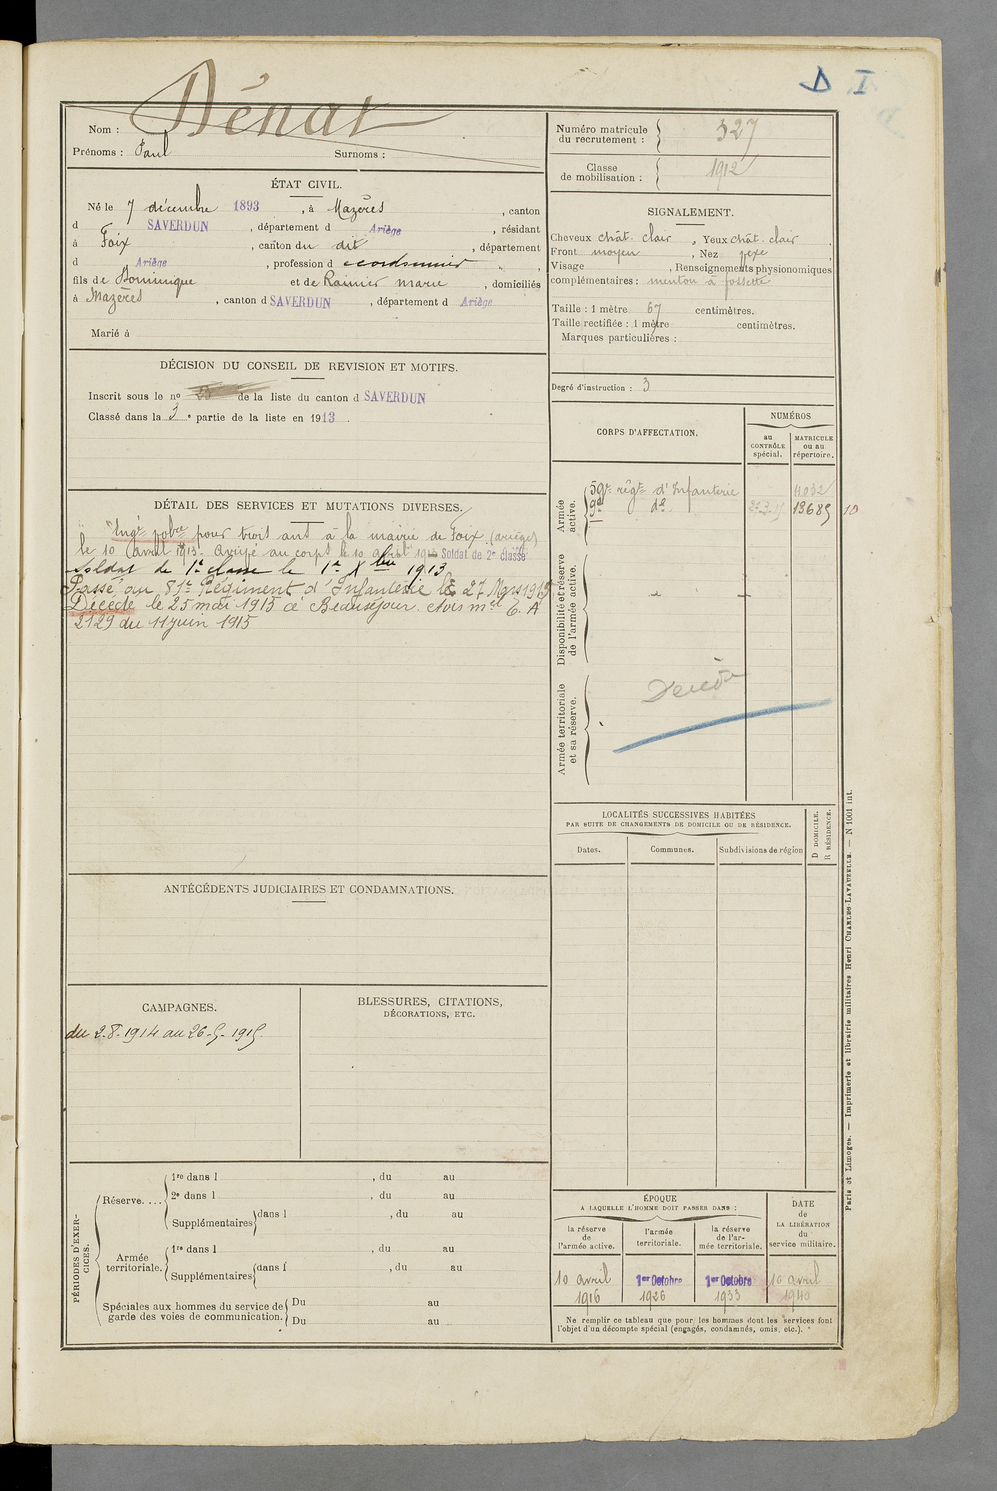 D I
Nom : Dénat
Prénoms : Paul Surnoms :
ÉTAT CIVIL.
Né le 7 décembre 1893, à Mazères, canton
d SAVERDUN, département d Ariège, résidant
à Foix, canton du dit, département
d Ariège, profession d cordonnier,
fils de Dominique et de Rainier marie, domiciliés
à Mazères, canton d SAVERDUN, département d Ariège
Marié à
DÉCISION DU CONSEIL DE REVISION ET MOTIFS.
Inscrit sous le no de la liste du canton d SAVERDUN
Classé dans la 3e partie de la liste en 1913.
DÉTAIL DES SERVICES ET MUTATIONS DIVERSES.
Engé volre pour trois ans à la mairie de Foix (ariège)
le 10 avril 1913. Arrivé au corps le 10 avril 1913 Soldat de 2e classe
Soldat de 1e classe le 1er Xbre 1913
Passé au 81e Régiment d'Infanterie le 27 Mars 1915
Décédé le 25 mai 1915 à Beauséjour. Avis mel C. A
2129 du 11 juin 1915
ANTÉCÉDENTS JUDICIAIRES ET CONDAMNATIONS.
CAMPAGNES.
du 2-8-1914 au 26-5-1915.
BLESSURES, CITATIONS,
DÉCORATIONS, ETC.
PÉRIODES D'EXER-
CICES.
Réserve....
1re dans l , du au
2e dans l , du au
Supplémentaires dans l , du au
Armée
territoriale.
1re dans l , du au
Supplémentaires dans l , du au
Spéciales aux hommes du service de
garde des voies de communication.
Du au
Du au
Numéro matricule
du recrutement : 327
Classe
de mobilisation : 1912
SIGNALEMENT.
Cheveux chât. clair, Yeux chât. clair,
Front moyen, Nez vexe
Visage , Renseignements physionomiques
complémentaires : menton à fossette
Taille : 1 mètre 67 centimètres.
Taille rectifiée : 1 mètre centimètres.
Marques particulières :
Degré d'instruction : 3
CORPS D'AFFECTATION.
NUMÉROS
au
CONTRÔLE
spécial.
MATRICULE
ou au
répertoire.
Armée
active.
59e régt d'Infanterie 11032
9e do 13685 10
Disponibilité et réserve
de l'armée active.
Armée territoriale
et sa réserve.
Décédé
LOCALITÉS SUCCESSIVES HABITÉES
PAR SUITE DE CHANGEMENTS DE DOMICILE OU DE RÉSIDENCE.
Dates.
Communes.
Subdivisions de région
D DOMICILE.
R RÉSIDENCE.
ÉPOQUE
A LAQUELLE L'HOMME DOIT PASSER DANS :
la réserve
de
l'armée active.
l'armée
territoriale.
la réserve
de l'ar-
mée territoriale.
DATE
de
LA LIBÉRATION
du
service militaire.
10 avril 1er Octobre 1er Octobre 10 avril
1916 1926 1933 1940
Ne remplir ce tableau que pour les hommes dont les services font
l'objet d'un décompte spécial (engagés, condamnés, omis, etc.).
Paris et Limoges. — Imprimerie et librairie militaires Henri CHARLES-LAVAUZELLE. — N 1001 int.